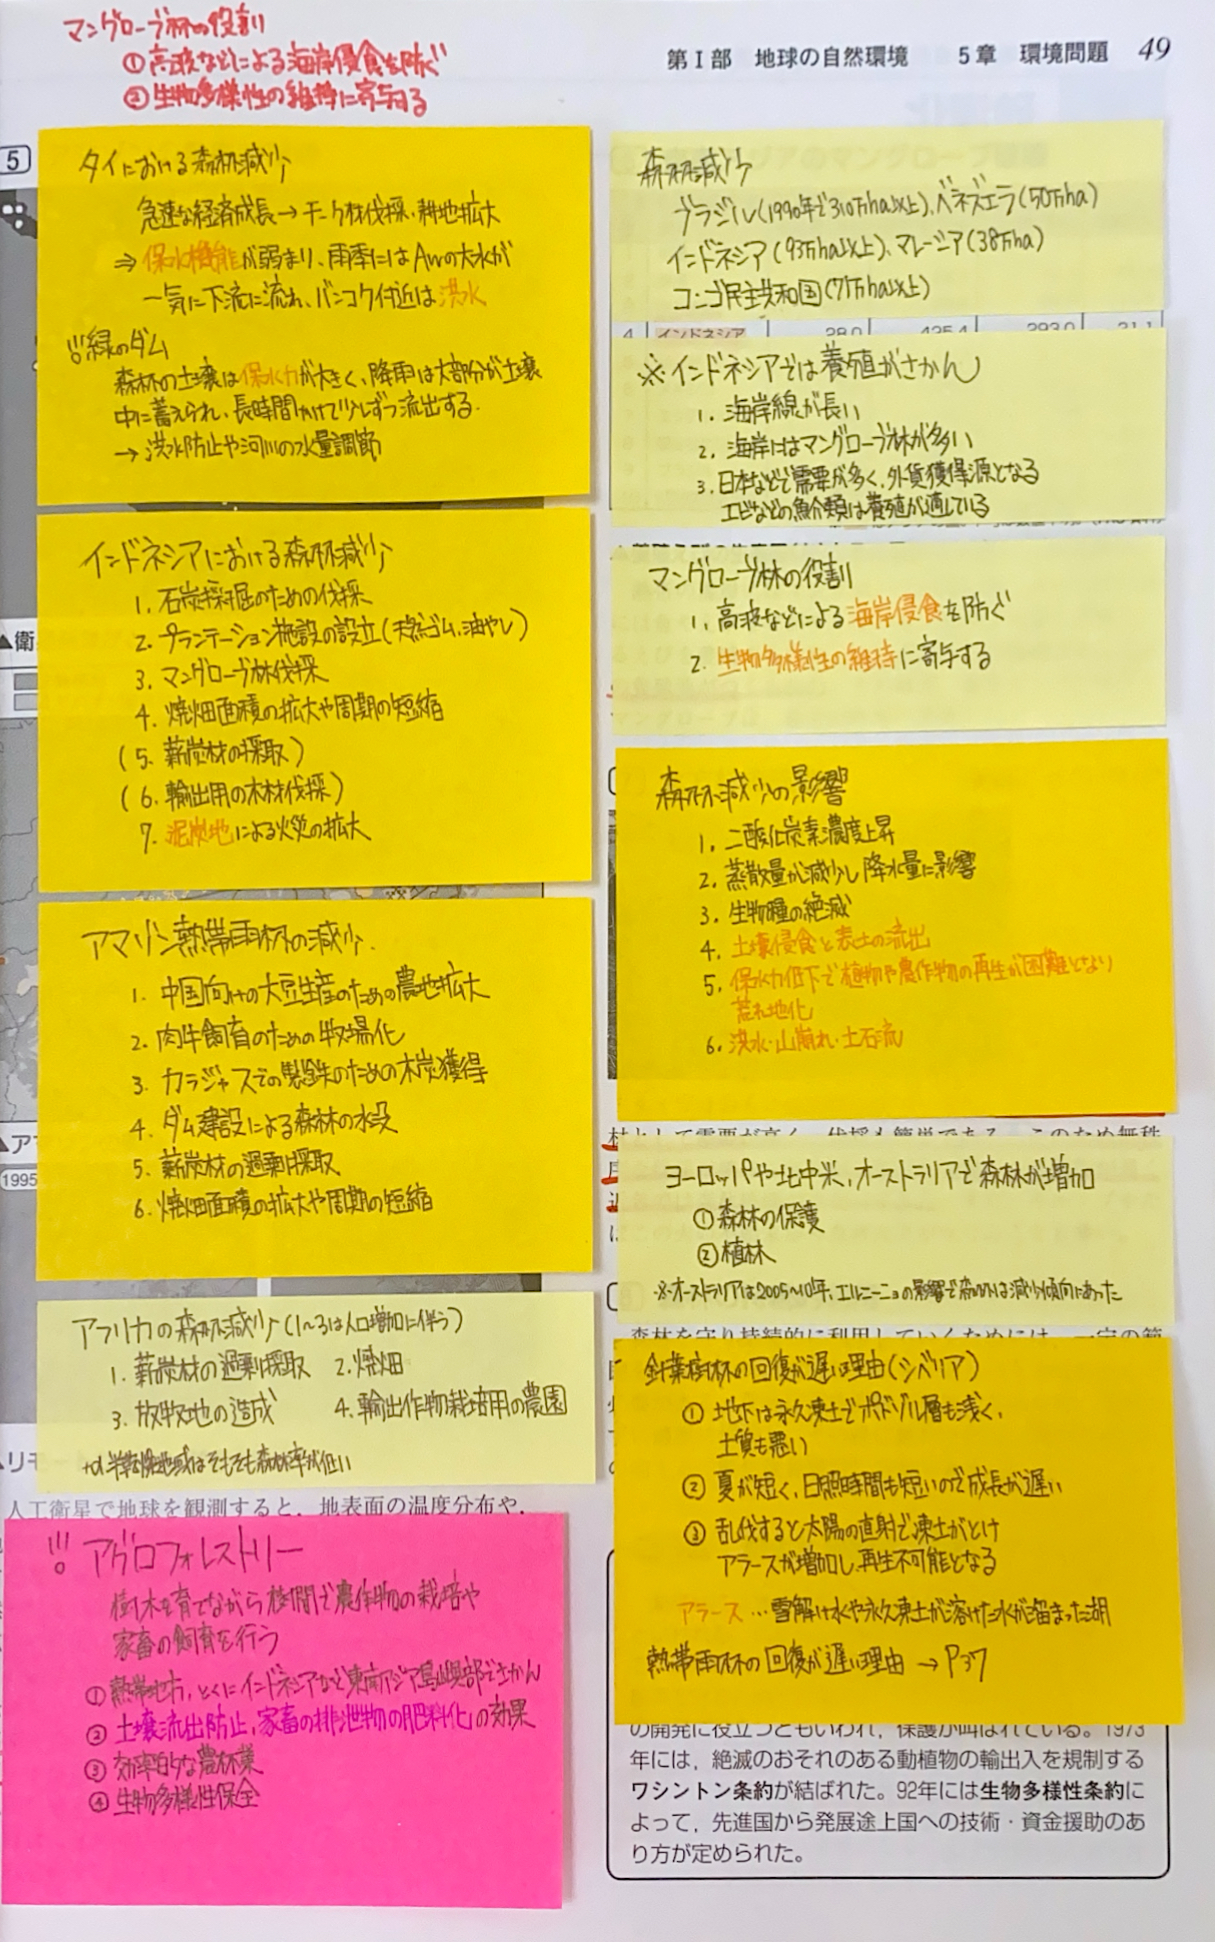 マングローブ林の役割
①高波などによる海岸侵食を防ぐ
②生物多様性の維持に寄与する
第Ⅰ部 地球の自然環境 5章 環境問題 49
5
タイにおける森林減少
急速な経済成長→チーク材伐採・耕地拡大
⇒保水機能が弱まり、雨季にはAwの大水が
一気に下流に流れ、バンコク付近は洪水
!!緑のダム
森林の土壌は保水力が大きく、降雨は大部分が土壌
中に蓄えられ、長時間かけて少しずつ流出する。
→洪水防止や河川の水量調節
▲衛
インドネシアにおける森林減少
1. 石炭採掘のための伐採
2. プランテーション施設の設立(天然ゴム、油やし)
3. マングローブ林伐採
4. 焼畑面積の拡大や周期の短縮
(5. 薪炭材の採取)
(6. 輸出用の木材伐採)
7. 泥炭地による火災の拡大
アマゾン熱帯雨林の減少
1. 中国向けの大豆生産のための農地拡大
2. 肉牛飼育のための牧場化
3. カラジャスでの製鉄のための木炭獲得
4. ダム建設による森林の水没
5. 薪炭材の過剰採取
6. 焼畑面積の拡大や周期の短縮
▲ア
1995
アフリカの森林減少(1~3は人口増加に伴う)
1. 薪炭材の過剰採取 2. 焼畑
3. 放牧地の造成 4. 輸出作物栽培用の農園
+α 半乾燥地域はそもそも森林率が低い
▲リモ
人工衛星で地球を観測すると、地表面の温度分布や、
!!! アグロフォレストリー
樹木を育てながら樹間で農作物の栽培や
家畜の飼育を行う
①熱帯地方、とくにインドネシアなど東南アジア島嶼部でさかん
②土壌流出防止、家畜の排泄物の肥料化の効果
③効率的な農林業
④生物多様性保全
森林減少
ブラジル(1990年で310万ha以上)、ベネズエラ(50万ha)
インドネシア(93万ha以上)、マレーシア(38万ha)
コンゴ民主共和国(71万ha以上)
4 インドネシア 28.0 425.4 293.0 31.1
※インドネシアでは養殖がさかん
1. 海岸線が長い
2. 海岸にはマングローブ林が多い
3. 日本などで需要が多く、外貨獲得源となる
エビなどの魚介類は養殖が適している
マングローブ林の役割
1. 高波などによる海岸侵食を防ぐ
2. 生物多様性の維持に寄与する
森林減少の影響
1. 二酸化炭素濃度上昇
2. 蒸散量が減少し降水量に影響
3. 生物種の絶滅
4. 土壌侵食と表土の流出
5. 保水力低下で植物や農作物の再生が困難となり
荒れ地化
6. 洪水・山崩れ・土石流
材として需要が高く、伐採も簡単である。このため無秩
ヨーロッパや北中米、オーストラリアで森林が増加
①森林の保護
②植林
※オーストラリアは2005~10年、エルニーニョの影響で森林は減少傾向にあった
森林を守り持続的に利用していくためには、一定の範
針葉樹林の回復が遅い理由(シベリア)
①地下は永久凍土でポドゾル層も浅く、
土質も悪い
②夏が短く、日照時間も短いので成長が遅い
③乱伐すると太陽の直射で凍土がとけ
アラースが増加し、再生不可能となる
アラース…雪解け水や永久凍土が溶けた水が溜まった湖
熱帯雨林の回復が遅い理由→P37
の開発に役立つともいわれ、保護が叫ばれている。1973
年には、絶滅のおそれのある動植物の輸出入を規制する
ワシントン条約が結ばれた。92年には生物多様性条約に
よって、先進国から発展途上国への技術・資金援助のあ
り方が定められた。